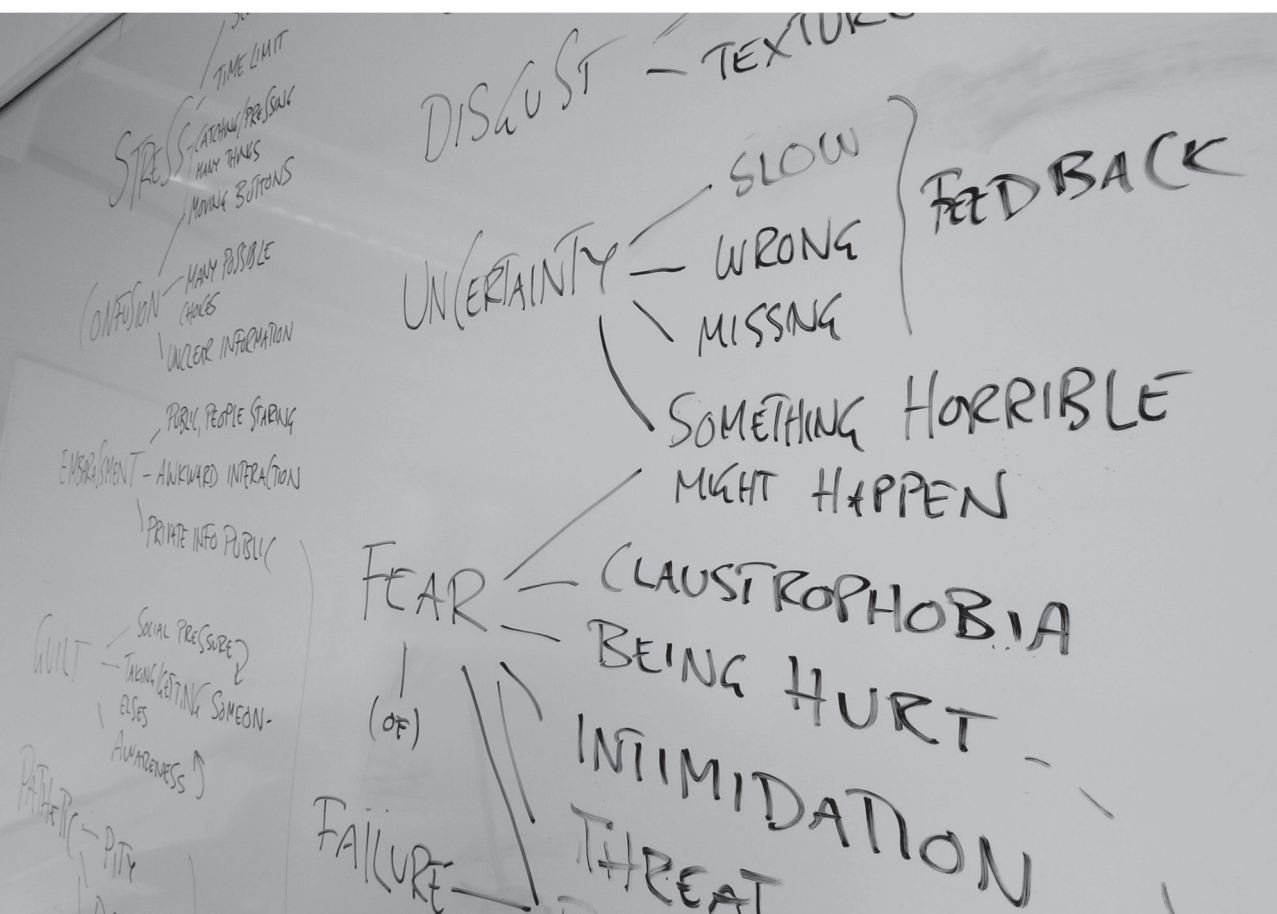 TIME LIMIT
STRESS
CATCHING/PRESSING
MANY THINGS
MOVING BUTTONS
CONFUSION
MANY POSSIBLE
CHOICES
UNCLEAR INFORMATION
PUBLIC, PEOPLE STARING
EMBARASSMENT - AWKWARD INTERACTION
PRIVATE INFO PUBLIC
GUILT
SOCIAL PRESSURE
TAKING/GETTING SOMEON-
ELSES
AWARENESS
PATHETIC - PITY
DISGUST - TEXTURE
UNCERTAINTY
SLOW
WRONG
MISSNG
FEEDBACK
SOMETHING HORRIBLE
MIGHT HAPPEN
FEAR
(OF)
CLAUSTROPHOBIA
BEING HURT -
INTIMIDATION
THREAT
FAILURE